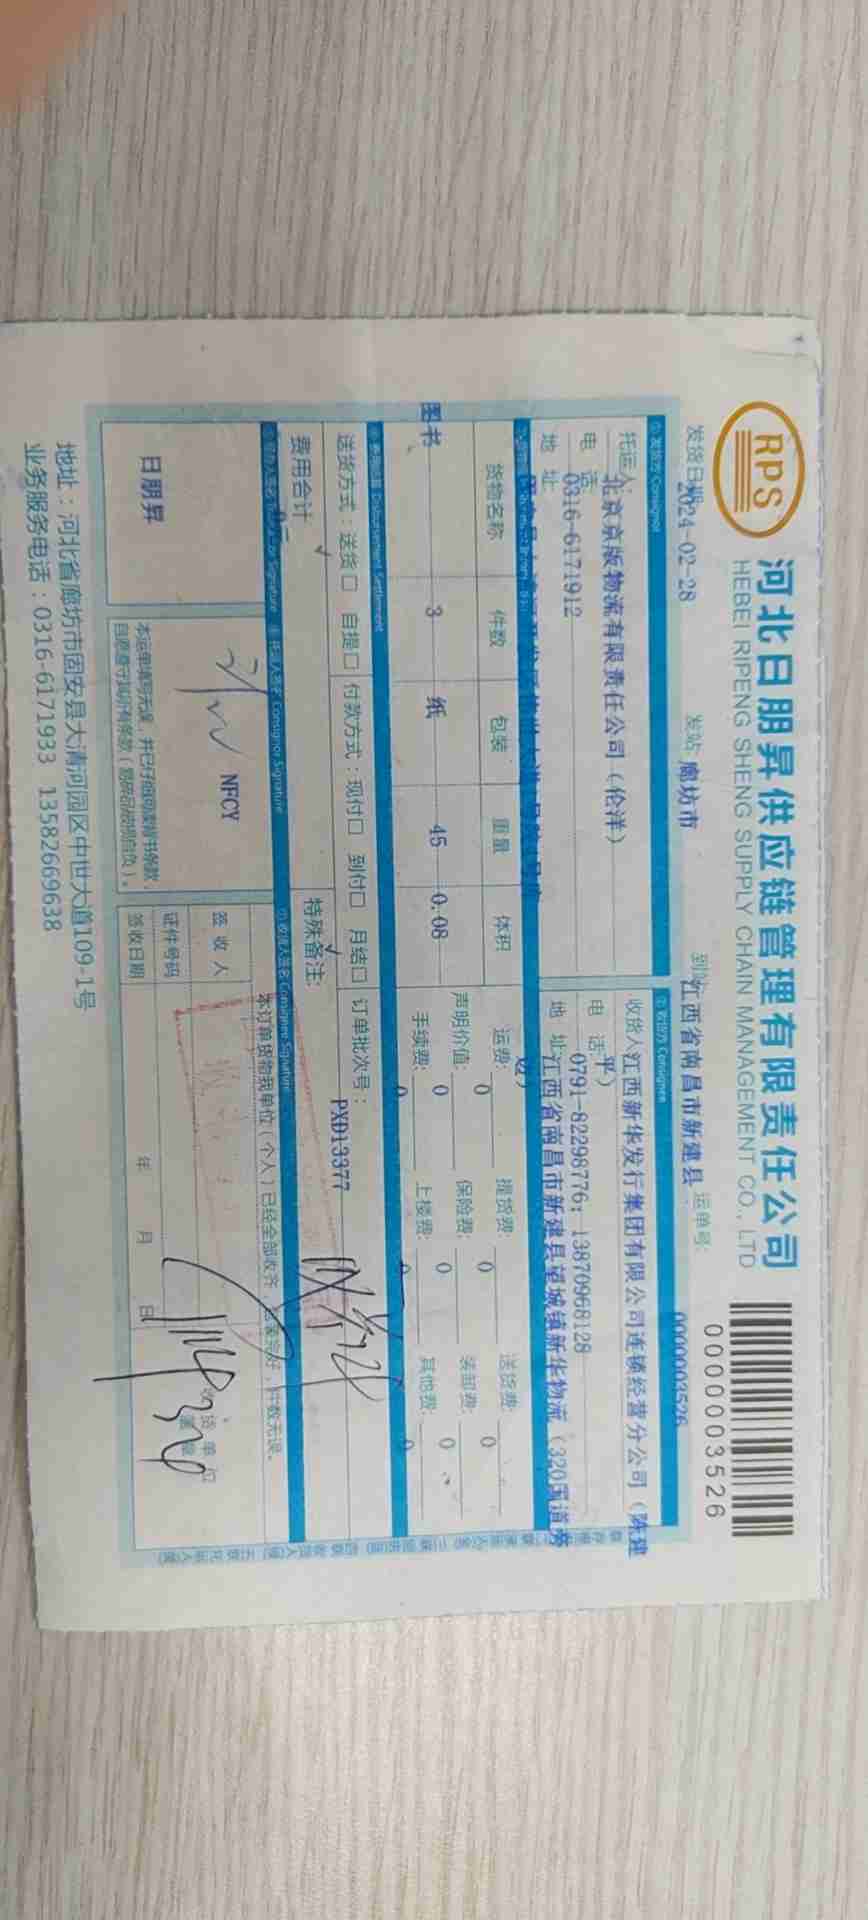 RPS
河北日朋昇供应链管理有限责任公司
HEBEI RIPENG SHENG SUPPLY CHAIN MANAGEMENT CO., LTD
0000003526
发货日期 2024-02-28 发站: 廊坊市 到站 江西省南昌市新建县 运单号: 0000003526
①发货方 Consignor ②收货方 Consignee
托运人: 北京京版物流有限责任公司（伦洋） 收货人 江西新华发行集团有限公司连锁经营分公司（陈建平）
电 话: 0316-6171912 电 话 0791-82298776; 13870968128
地 址: 地 址 江西省南昌市新建县望城镇新华物流（320国道旁边）
货物名称 件数 包装 重量 体积 运费: 0 提货费: 0 送货费: 0
声明价值: 0 保险费: 0 装卸费: 0
图书 3 纸 45 0.08 手续费: 0 上楼费: 0 其他费: 0
Disbursement Settlement
送货方式：送货□ 自提□ 付款方式：现付□ 到付□ 月结□ 订单批次号： PXD13377
费用合计 特殊备注:
Signature 托运人签名 Consignor Signature 收货人签名 Consignee Signature
日朋昇
NFCY
本运单填写无误，并已仔细阅读背书条款，
自愿遵守其所有条款（易碎品破损自负）。
本订单货物我单位（个人）已经全部收齐，件数无误。
签 收 人
证件号码
签收日期 年 月 日
收货单位
地址：河北省廊坊市固安县大清河园区中世大道109-1号
业务服务电话：0316-6171933 13582669638